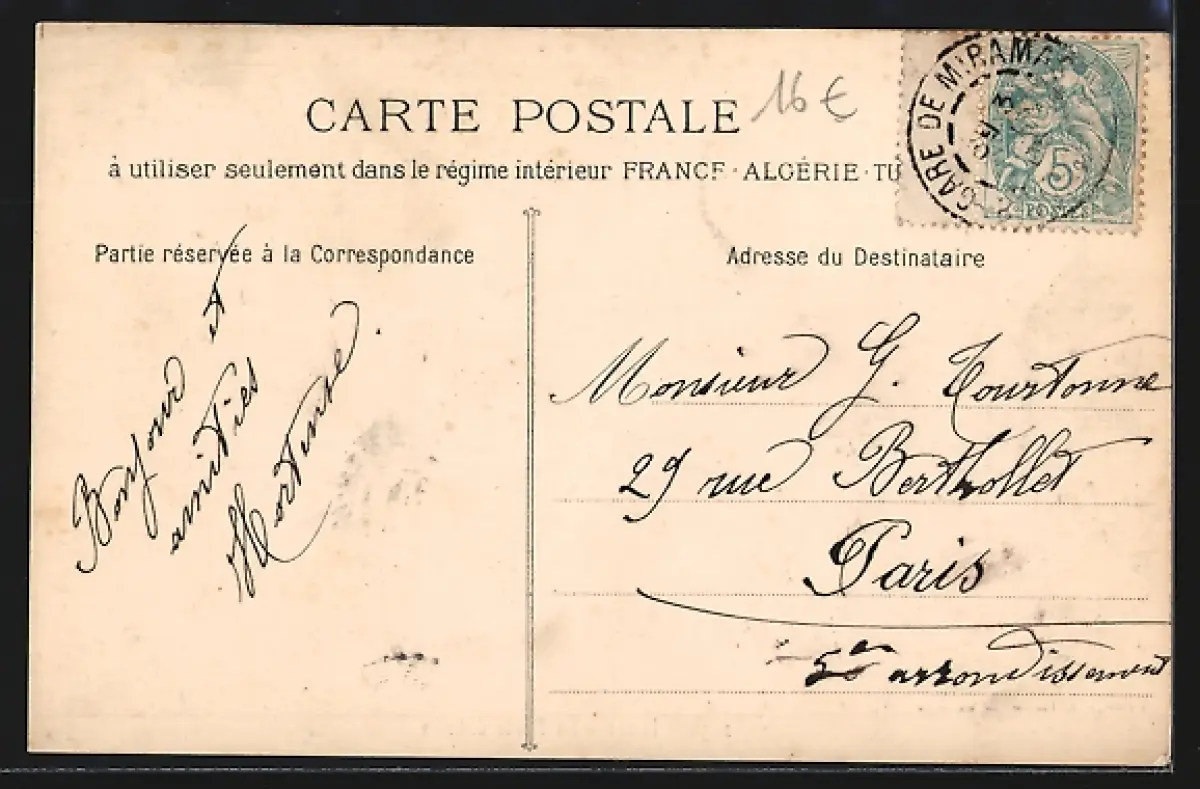 CARTE POSTALE
16 €
à utiliser seulement dans le régime intérieur FRANCE · ALGÉRIE · TU
GARE DE MIRAMA
5c
POSTES
Partie réservée à la Correspondance
Bonjour et
amitiés
Hortense
Adresse du Destinataire
Monsieur G. Tourtonne
29 rue Berthollet
Paris
5e arrondissement